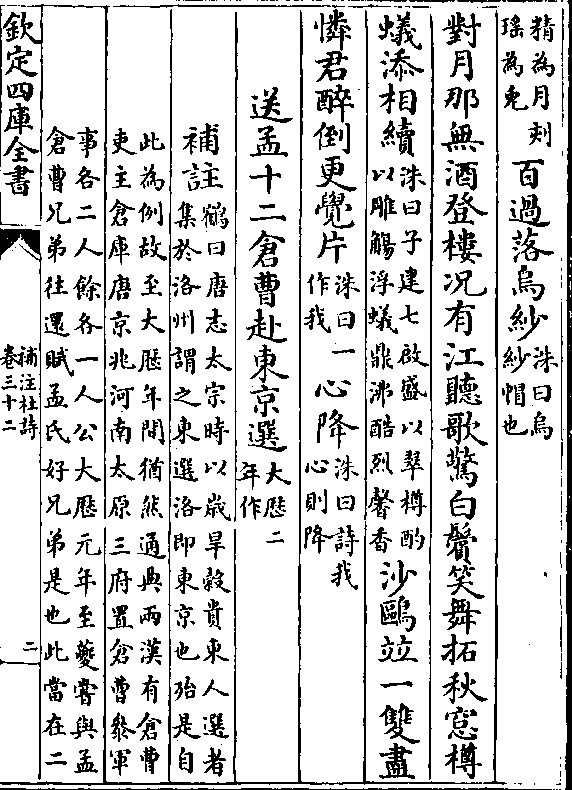 精為月刻
瑤為兎
百過落烏紗
洙曰烏
紗帽也
對月那無酒登樓况有江聽歌驚白鬢笑舞拓秋窓樽
蟻添相續
洙曰子建七啟盛以翠樽酌
以雕觴浮蟻鼎沸酷烈馨香
沙鷗竝一雙盡
憐君醉倒更覺片
洙曰一
作我
心降
洙曰詩我
心則降
送孟十二倉曹赴東京選
大厯二
年作
補註
鶴曰唐志太宗時以歲旱穀貴東人選者
集於洛州謂之東選洛即東京也殆是自
此為例故至大厯年間猶然通典兩漢有倉曹
吏主倉庫唐京兆河南太原三府置倉曹叅軍
事各二人餘各一人公大厯元年至夔嘗與孟
倉曹兄弟往還賦孟氏好兄弟是也此當在二
欽定四庫全書
補注杜詩
卷三十二
二